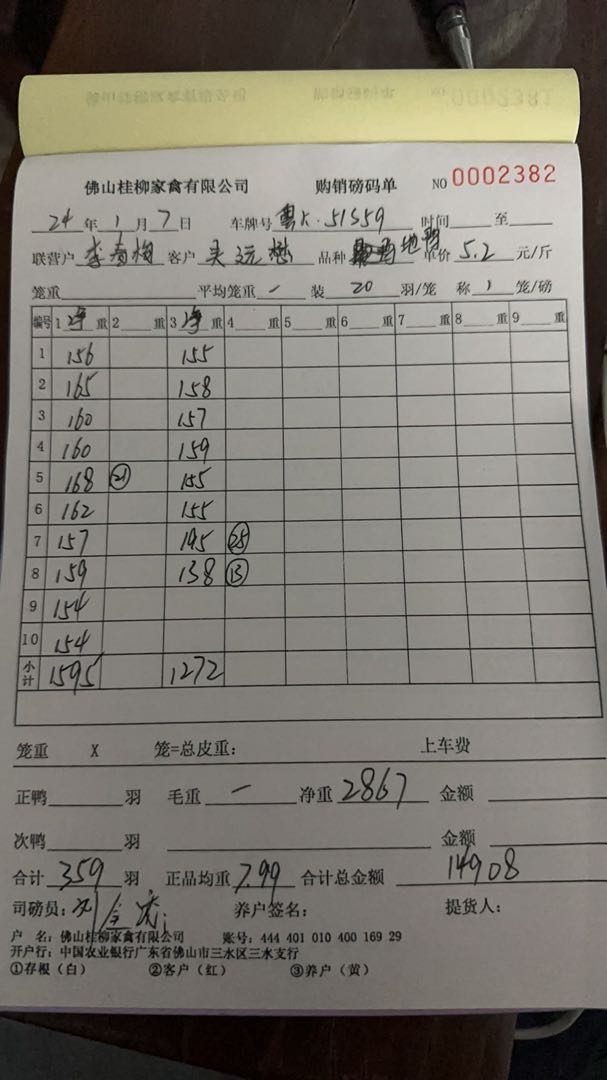 0002381
佛山桂柳家禽有限公司 购销磅码单 NO 0002382
24 年 1 月 7 日 车牌号 粤K·51559 时间 至
联营户 李 梅 客户 吴 品种 单价 5.2 元/斤
笼重 平均笼重 一 装 20 羽/笼 称 1 笼/磅
编号 1 净 重 2 重 3 净 重 4 重 5 重 6 重 7 重 8 重 9 重
1 156 155
2 165 158
3 160 157
4 160 159
5 168 21 155
6 162 155
7 157 195 25
8 159 138 13
9 154
10 154
小计 1595 1272
笼重 X 笼=总皮重: 上车费
正鸭 羽 毛重 一 净重 2867 金额
次鸭 羽 金额
合计 359 羽 正品均重 7.99 合计总金额 14908
司磅员: 刘 养户签名: 提货人:
户 名: 佛山桂柳家禽有限公司 账号: 444 401 010 400 169 29
开户行: 中国农业银行广东省佛山市三水区三水支行
①存根（白） ②客户（红） ③养户（黄）